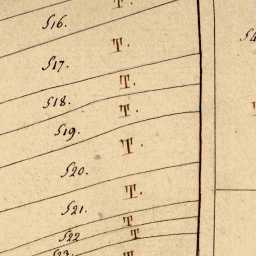 516. T.
517. T.
518. T.
519. T.
520. T.
521. T.
522 T
523. T